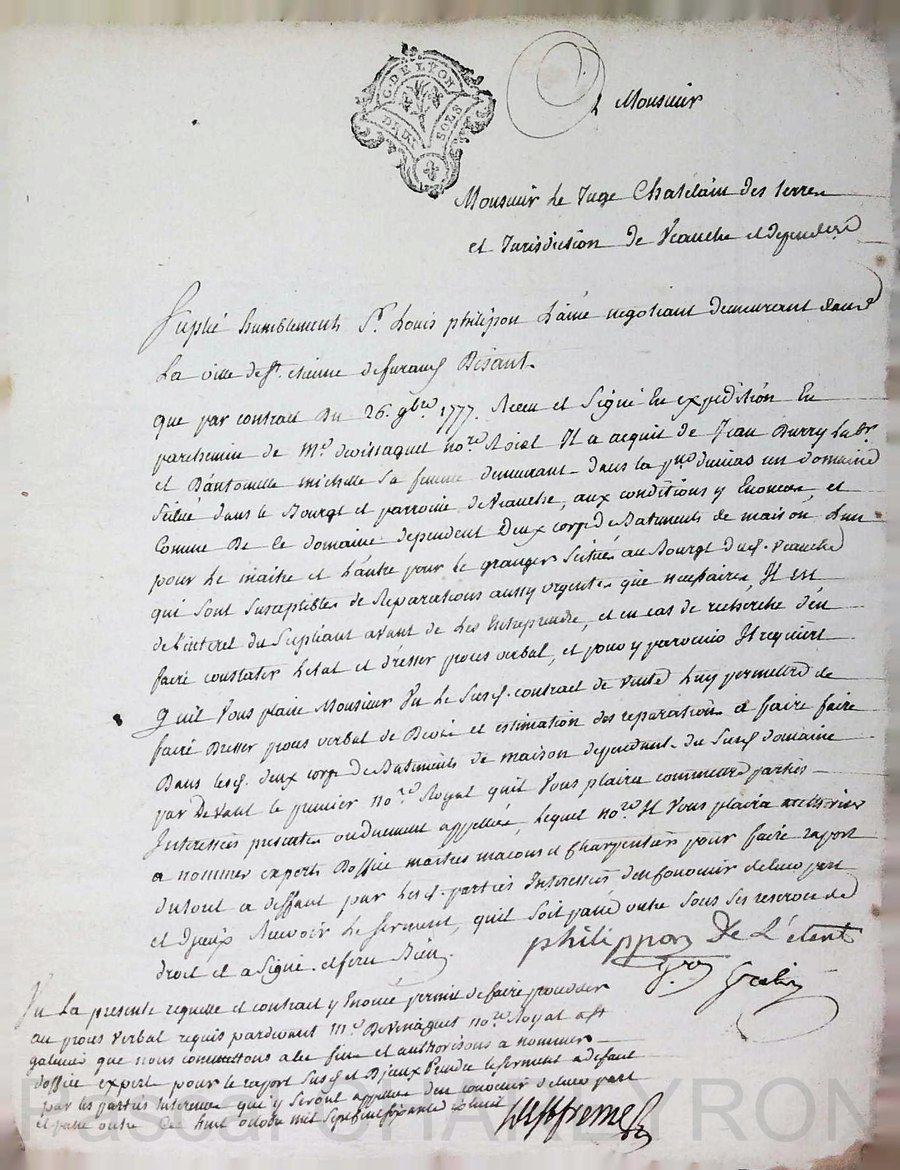 G. DE LYON
DEUX SOLS
A Monsieur
Monsieur Le Juge Chatelain des terres
et Jurisdiction de Veauche et dependces
Suplie humblement Sr. Louis philipon L'ainé negotiant demeurant dans
La ville de St. etienne defurans Disant.
que par contract Du 26. 9bre 1777. Receu et Signé En expedition En
parchemin de Me. no.re Roial Il a acquit de Jean Durry Labr.
et D'antoinette michelle Sa femme demeurant dans la un domaine
Scitué dans le Bourgt et parroisse de Veauche, aux conditions y Enoncee, et
Comme De Ce domaine dependent Deux corps de Batiments de maison L'un
pour Le maitre et L'autre pour le granger Scitués au Bourgt dud. Veauche
qui sont susceptibles de Reparations aussy urgentes que necessaires, Il est
de l'interet du Supliant avant de Les Entreprendre, et en cas de recherche d'en
faire constater L'etat et dresser proces verbal, et pour y parvenir Il requiert
qu'il Vous plaise Monsieur Vu Le Susd. contract de vente Luy permettre de
faire Dresser proces verbal de et estimation des reparations a faire faire
Dans lesd. deux corps de Batiments de maison dependant du Susd domaine
par Devant le premier no.re Royal qu'il Vous plaira commettre parties
Interessées presentes ou duement appellées, Lequel no.re Il Vous plaira authoriser
a nommer experts D'office maitres macons et Charpentiers pour faire raport
du tout a deffaut par Lesd. parties Interessées d'en convenir de leur part
et D'yceux Recevoir Le serment, qu'il soit passé outre sous Ses reserves de
droit et a Signé. et ferez Bien.
philippon De L'étant
Vu La presente requette et contract y Enoncé permis de faire proceder
au proces verbal requis pardevant Me. no.re Royal a St
galmier que nous commettons a cette fin et authorisons a nommer
d'office expert pour le raport Susd et D'yceux Prendre le serment a defaut
par les parties Interessées qui y Seront appellées d'en convenir de leur part
et passé outre. Ce huit octobre mil Sept cent
Pascal CHAMBEYRON